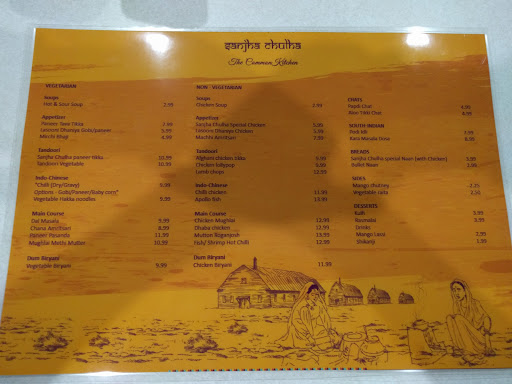 Sanjha Chulha
The Common Kitchen
VEGETARIAN
Soups
Hot & Sour Soup 2.99
Appetizer
Paneer Tawa Tikka 2.99
Lassoni Dhaniya Gobi/paneer 5.99
Mirchi Bhaji 4.99
Tandoori
Sanjha Chulha paneer tikka 10.99
Tandoori Vegetable 10.99
Indo-Chinese
"Chilli (Dry/Gravy) 9.99
Options - Gobi/Paneer/Baby corn"
Vegetable Hakka noodles 9.99
Main Course
Dal Masala 9.99
Chana Amritsari 9.99
Paneer Pasanda 11.99
Mughlai Methi Mutter 10.99
Dum Biryani
Vegetable Biryani 9.99
NON - VEGETARIAN
Soups
Chicken Soup 2.99
Appetizer
Sanjha Chulha Special Chicken 5.99
Lassoni Dhaniya Chicken 5.99
Machhi Amritsari 7.99
Tandoori
Afghani chicken tikka 9.99
Chicken lollypop 9.99
Lamb chops 12.99
Indo-Chinese
Chilli chicken 11.99
Apollo fish 13.99
Main Course
Chicken Mughlai 12.99
Dhaba chicken 12.99
Mutton Roganjosh 13.99
Fish/ Shrimp Hot Chilli 12.99
Dum Biryani
Chicken Biryani 11.99
CHATS
Chat
Tikki Chat 3.99
SOUTH INDIAN
Podi Idli 3.99
Kara Masala Dosa 6.99
BREADS
Sanjha Chulha special Naan (with Chicken) 3.99
Bullet Naan 2.99
SIDES
Mango chutney 2.25
Vegetable raita 2.50
DESSERTS
Kulfi 3.99
Rasmalai 3.99
Drinks
Mango Lassi 3.99
Shikanji 3.99